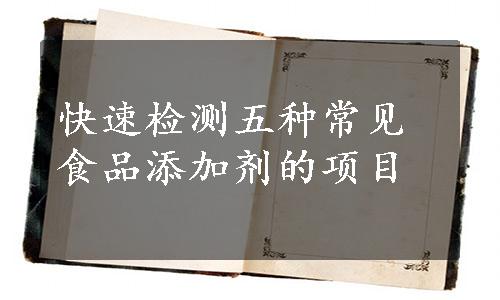 快速检测五种常见
食品添加剂的项目